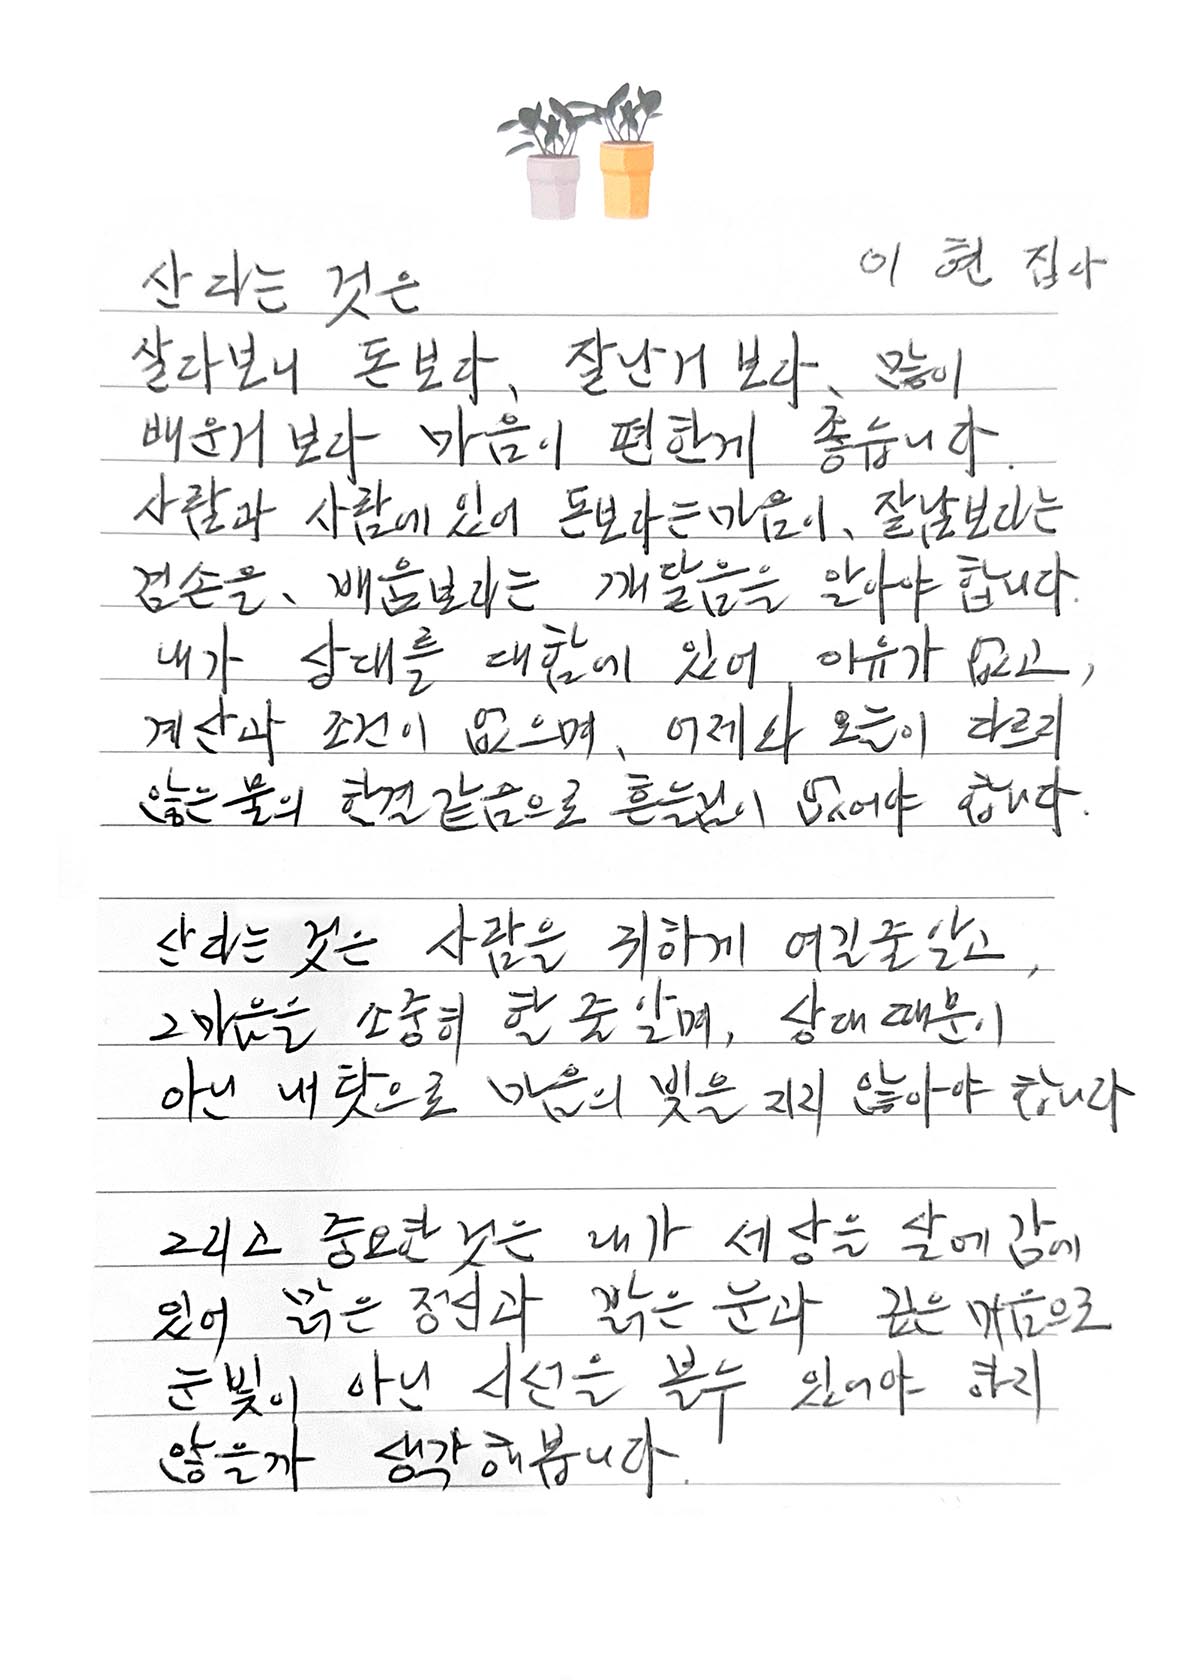 이 현 집사
산다는 것은
살다보니 돈보다, 잘난거 보다, 많이
배운거 보다 마음이 편한게 좋습니다.
사람과 사람에 있어 돈보다는 마음이, 잘남보다는
겸손을, 배움보다는 깨달음을 알아야 합니다.
내가 상대를 대함에 있어 이유가 없고,
계산과 조건이 없으며, 어제와 오늘이 다르지
않은 물의 한결같음으로 흔들림이 없어야 합니다.
산다는 것은 사람을 귀하게 여길줄 알고,
그 마음을 소중히 할 줄 알며, 상대 때문이
아닌 내 탓으로 마음의 빚을 지지 않아야 합니다
그리고 중요한 것은 내가 세상을 살에 감에
있어 맑은 정신과 밝은 눈과 깊은 마음으로
눈빛이 아닌 시선을 볼 수 있어야 하지
않을까 생각해봅니다.